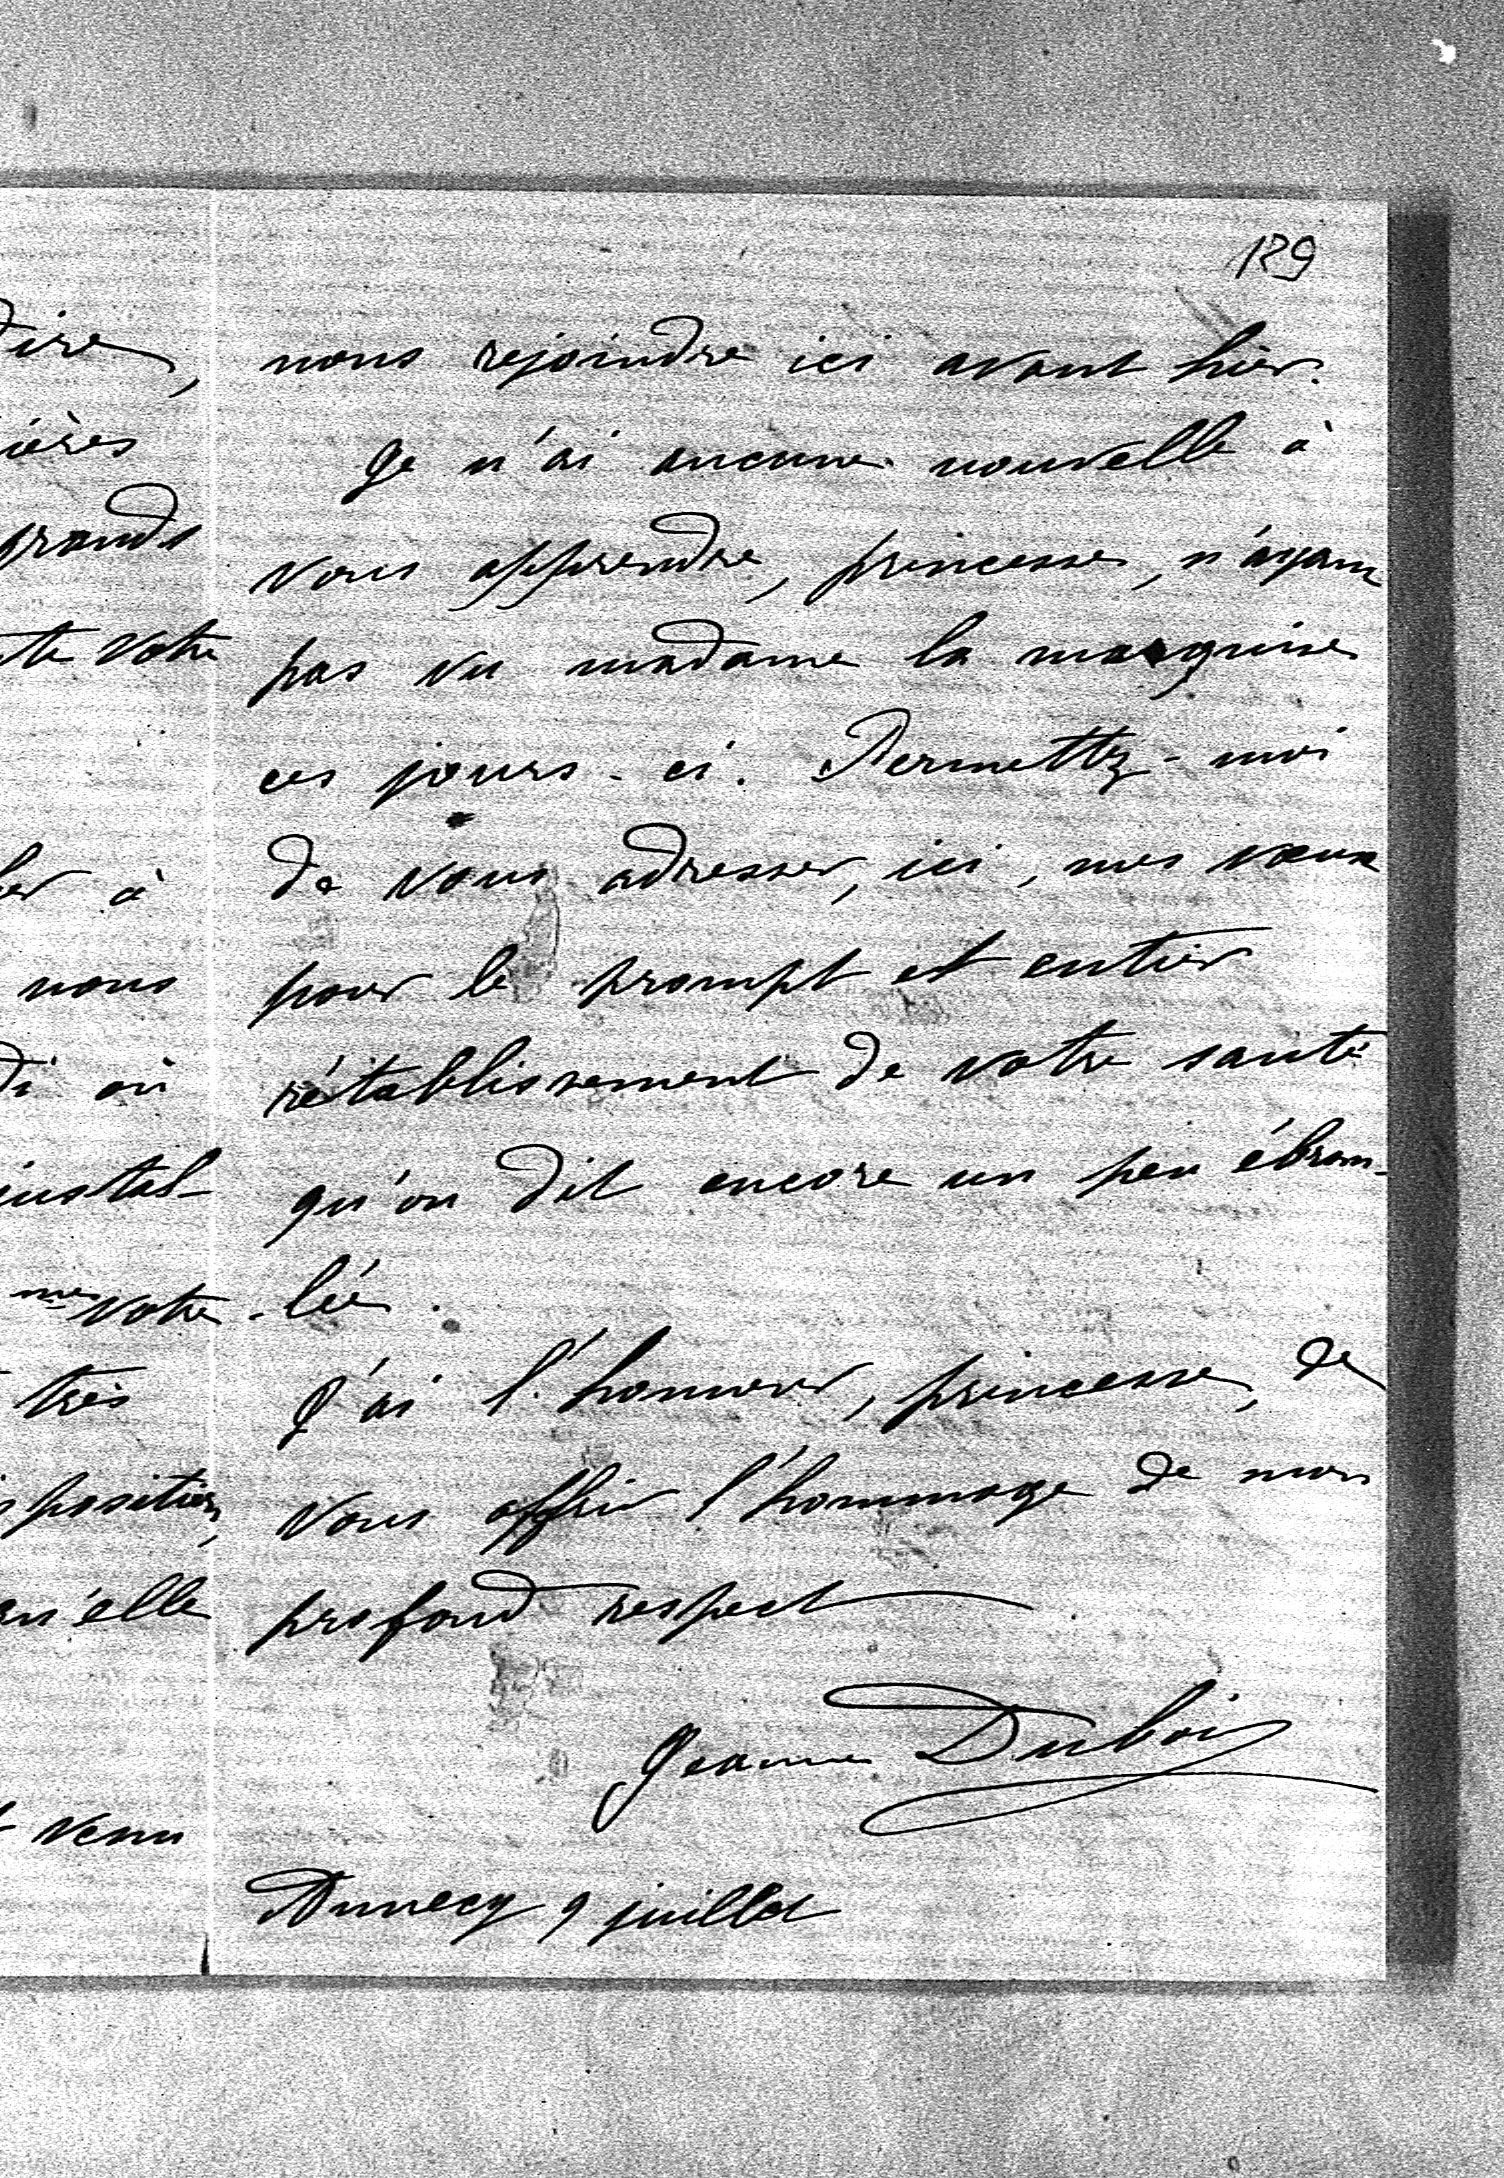 129
nous rejoindre ici avant hier.
Je n'ai aucune nouvelle à
vous apprendre, princesse, n'ayant
pas vu madame la marquise
ces jours-ci. Permettez-moi
de vous adresser, ici, mes vœux
pour le prompt et entier
rétablissement de votre santé
qu'on dit encore un peu ébran-
-lée.
J'ai l'honneur, princesse, de
vous offrir l'hommage de mon
profond respect
Jeanne Dubois
Annecy 9 juillet
dire,
ières
grands
votre
à
nous
di où
instal-
me votre
très
sposition,
qu'elle
venu